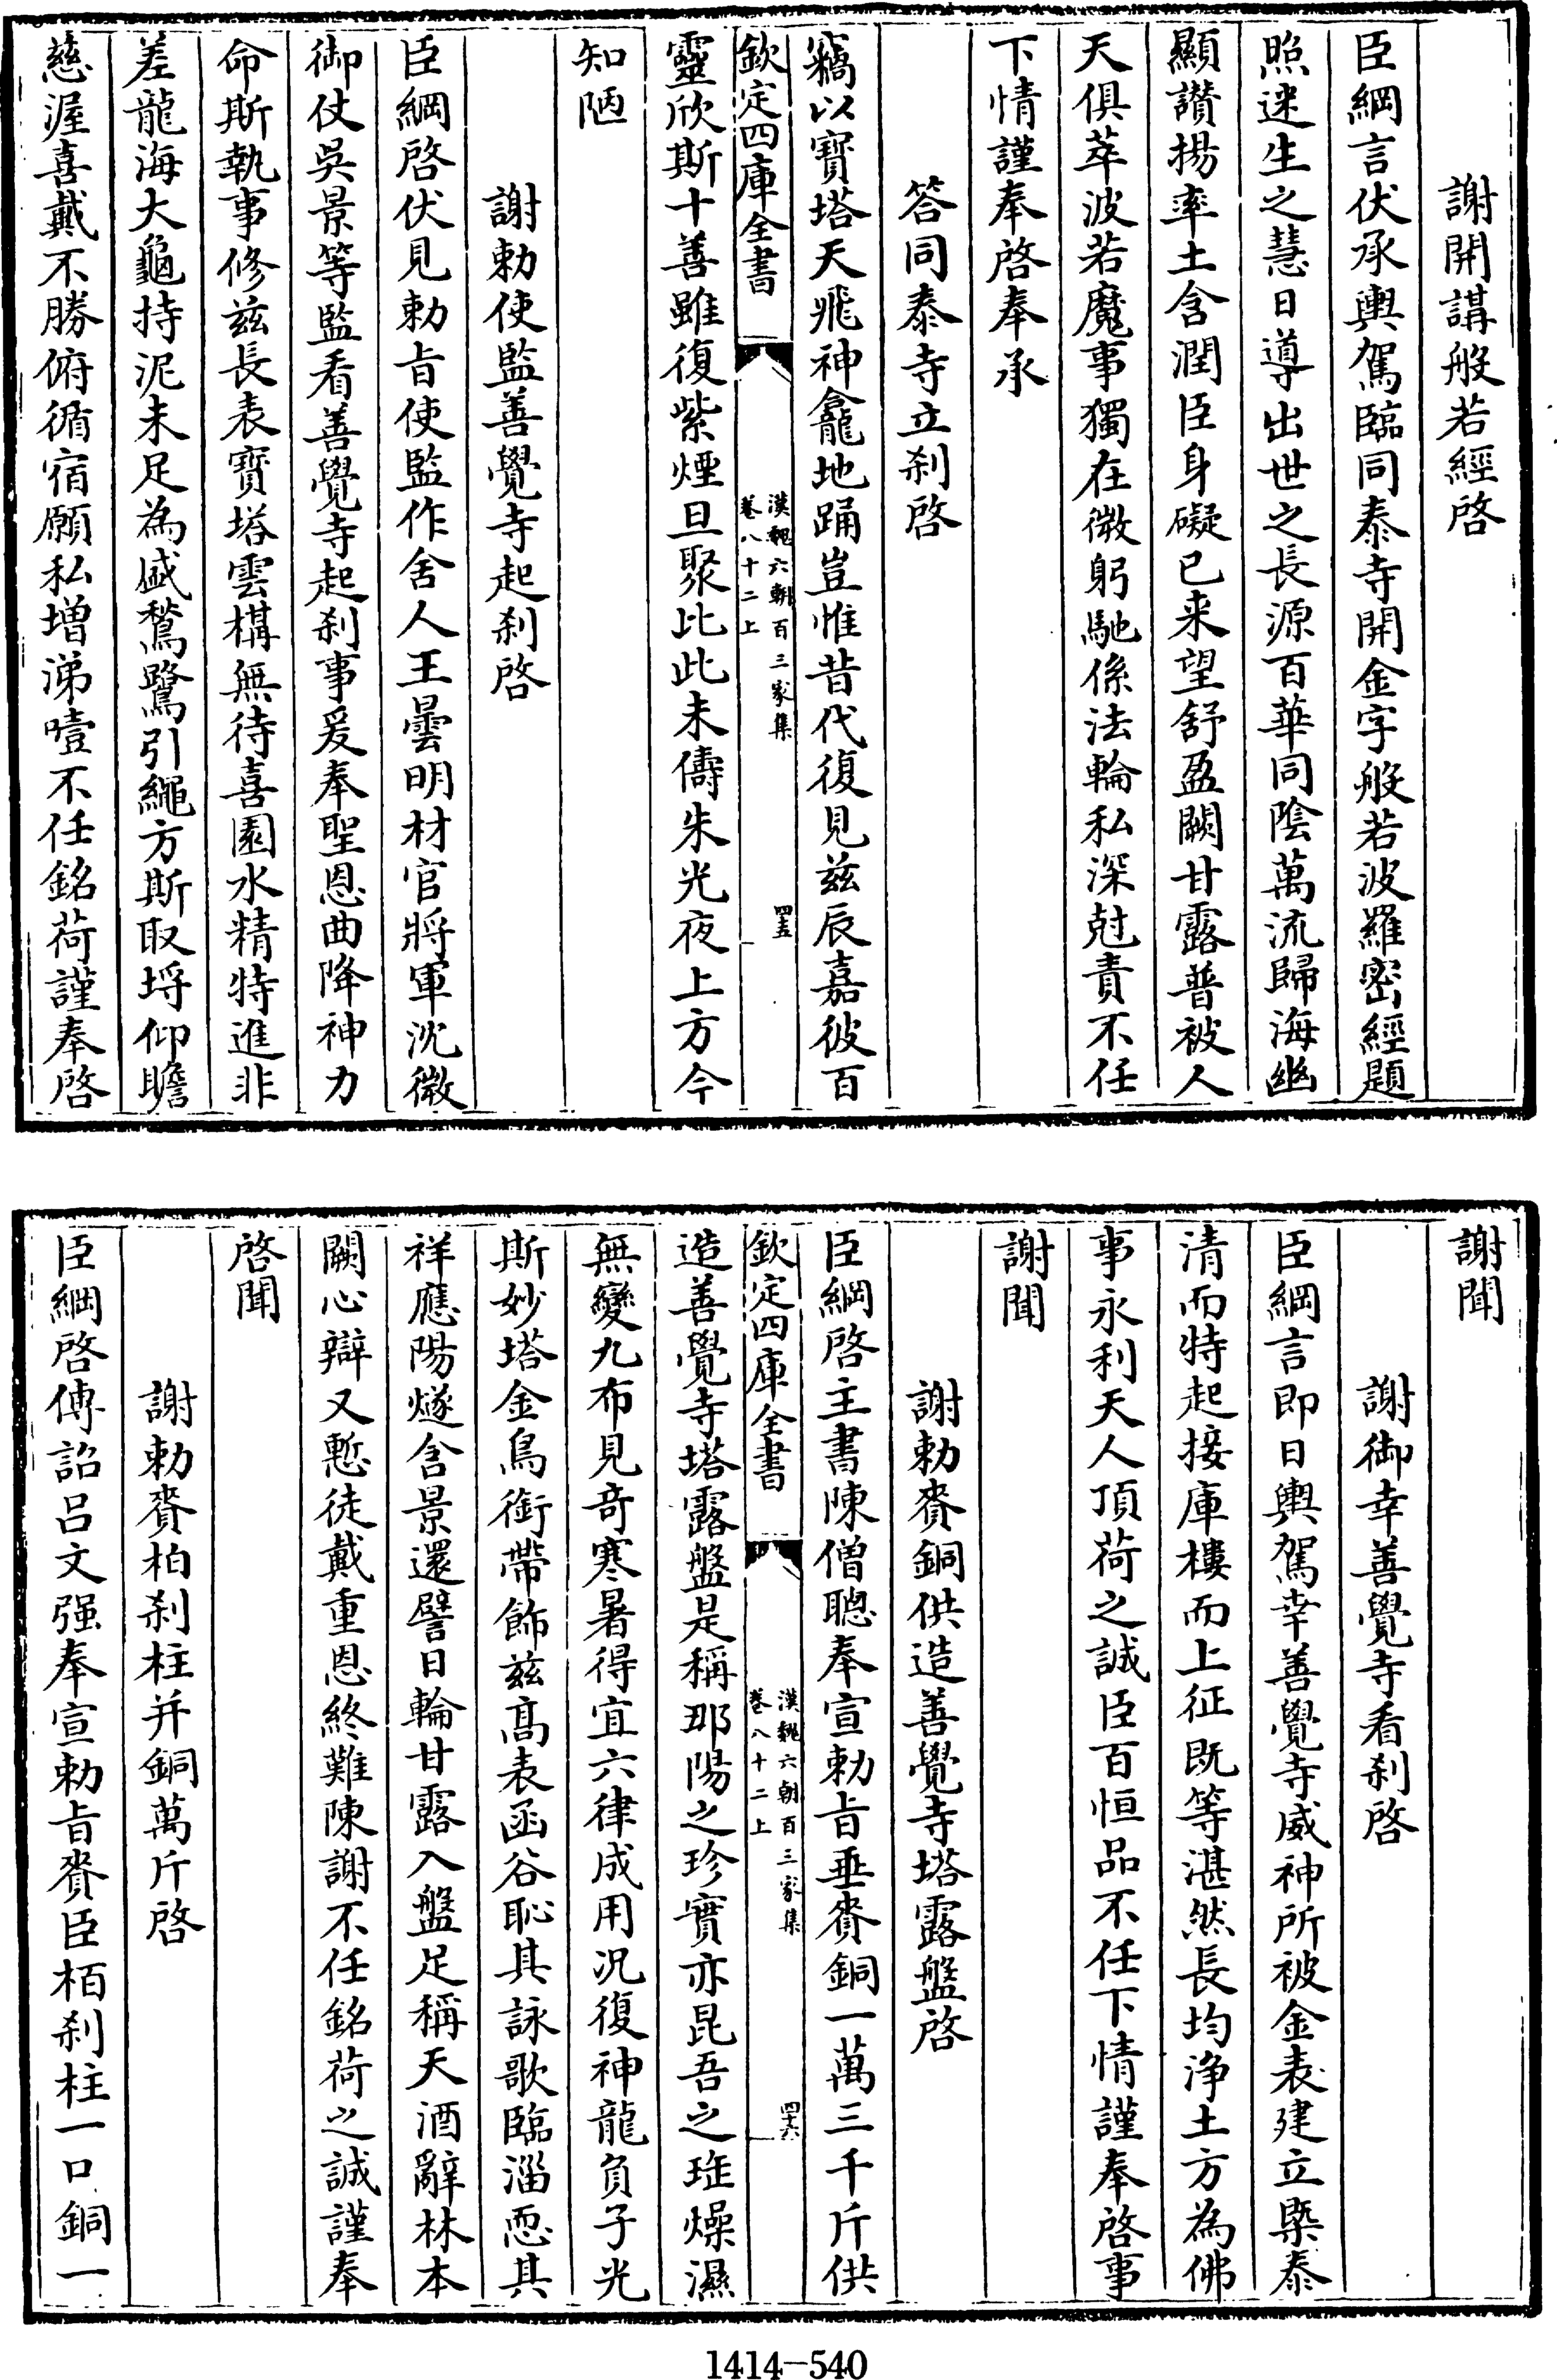 謝開講般若經啓
臣綱言伏承輿駕臨同泰寺開金字般若波羅密經題
照迷生之慧日導出世之長源百華同陰萬流歸海幽
顯讚揚率土含潤臣身礙已来望舒盈闕甘露普被人
天俱萃波若魔事獨在微躬馳係法輪私深尅責不任
下情謹奉啓奉承
答同泰寺立刹啓
竊以寳塔天飛神龕地踊豈惟昔代復見兹辰嘉彼百
欽定四庫全書
漢魏六朝百三家集
卷八十二上
四五
靈欣斯十善雖復紫煙旦聚比此未儔朱光夜上方今
知陋
謝勅使監善覺寺起刹啓
臣綱啓伏見勅旨使監作舍人王曇明材官將軍沈微
御仗吳景等監看善覺寺起刹事爰奉聖恩曲降神力
命斯執事修兹長表寳塔雲構無待喜園水精特進非
差龍海大龜持泥未足為盛鶩鷺引繩方斯取埒仰瞻
慈渥喜戴不勝俯循宿願私増涕噎不任銘荷謹奉啓
謝聞
謝御幸善覺寺看刹啓
臣綱言即日輿駕幸善覺寺威神所被金表建立槩泰
清而特起接庫樓而上征既等湛然長均浄土方為佛
事永利天人頂荷之誠臣百恒品不任下情謹奉啓事
謝聞
謝勅賚銅供造善覺寺塔露盤啓
臣綱啓主書陳僧聰奉宣勅旨垂賚銅一萬三千斤供
欽定四庫全書
漢魏六朝百三家集
卷八十二上
四六
造善覺寺塔露盤是稱耶陽之珍實亦昆吾之珤燥濕
無變九布見竒寒暑得宜六律成用况復神龍負子光
斯妙塔金鳥銜帶飾兹髙表函谷恥其詠歌臨淄恧其
祥應陽燧含景還譬日輪甘露入盤足稱天酒辭林本
闕心辯又慙徒戴重恩終難陳謝不任銘荷之誠謹奉
啓聞
謝勅賚柏刹柱并銅萬斤啓
臣綱啓傳詔吕文强奉宣勅旨賚臣栢刹柱一口銅一
1414-540